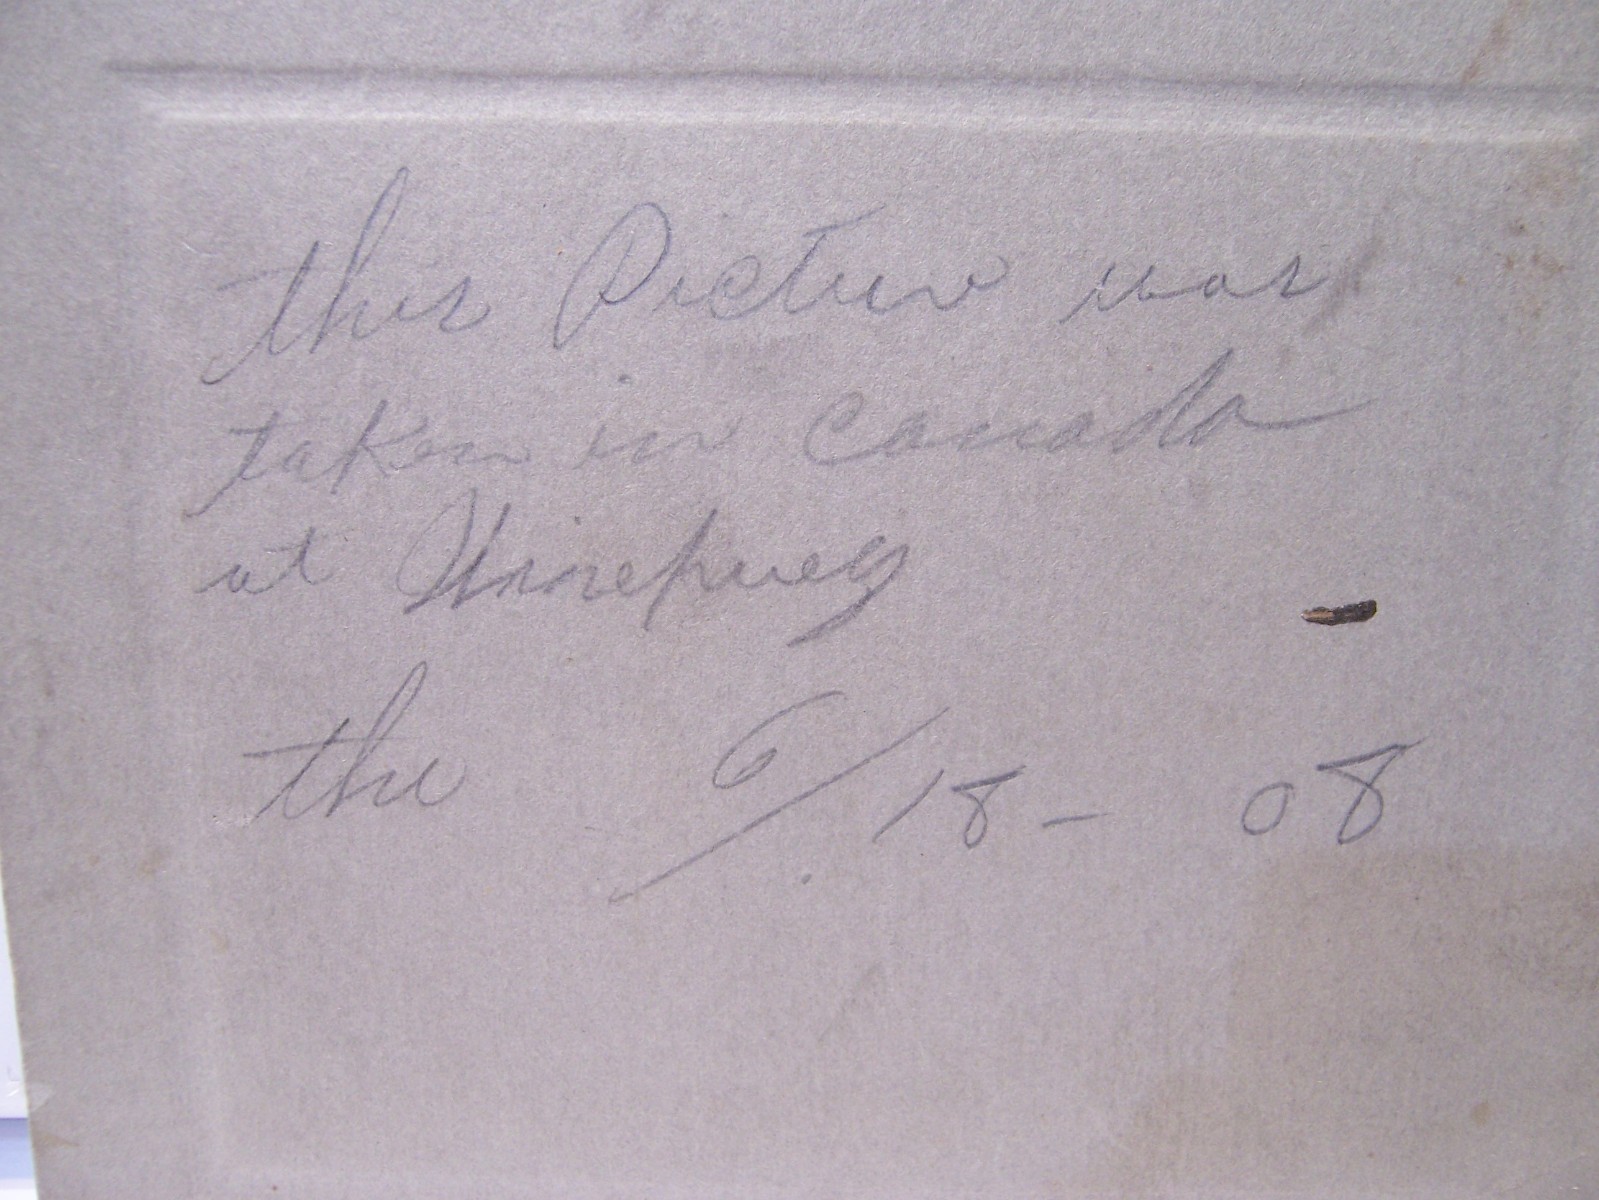 this Picture was
taken in Canada
at Winnepueg
the 6/18 - 08